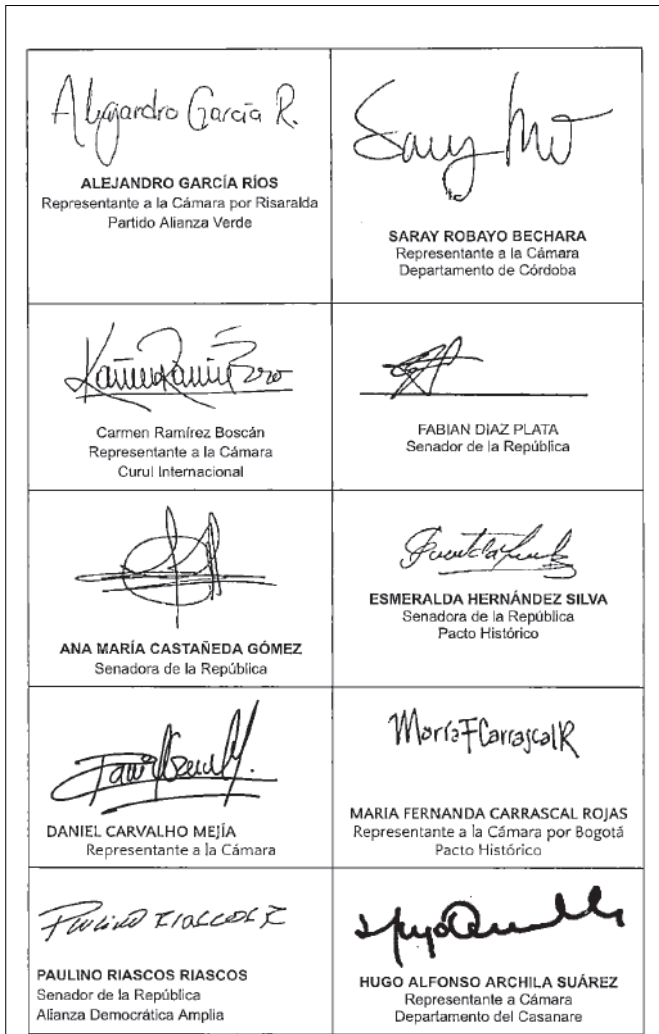 Alejandro García R.
ALEJANDRO GARCÍA RÍOS
Representante a la Cámara por Risaralda
Partido Alianza Verde
SARAY ROBAYO BECHARA
Representante a la Cámara
Departamento de Córdoba
Carmen Ramírez Boscán
Representante a la Cámara
Curul Internacional
FABIAN DIAZ PLATA
Senador de la República
ANA MARÍA CASTAÑEDA GÓMEZ
Senadora de la República
ESMERALDA HERNÁNDEZ SILVA
Senadora de la República
Pacto Histórico
DANIEL CARVALHO MEJÍA
Representante a la Cámara
María F Carrascal R
MARIA FERNANDA CARRASCAL ROJAS
Representante a la Cámara por Bogotá
Pacto Histórico
Paulino Riascos R
PAULINO RIASCOS RIASCOS
Senador de la República
Alianza Democrática Amplia
HUGO ALFONSO ARCHILA SUÁREZ
Representante a Cámara
Departamento del Casanare